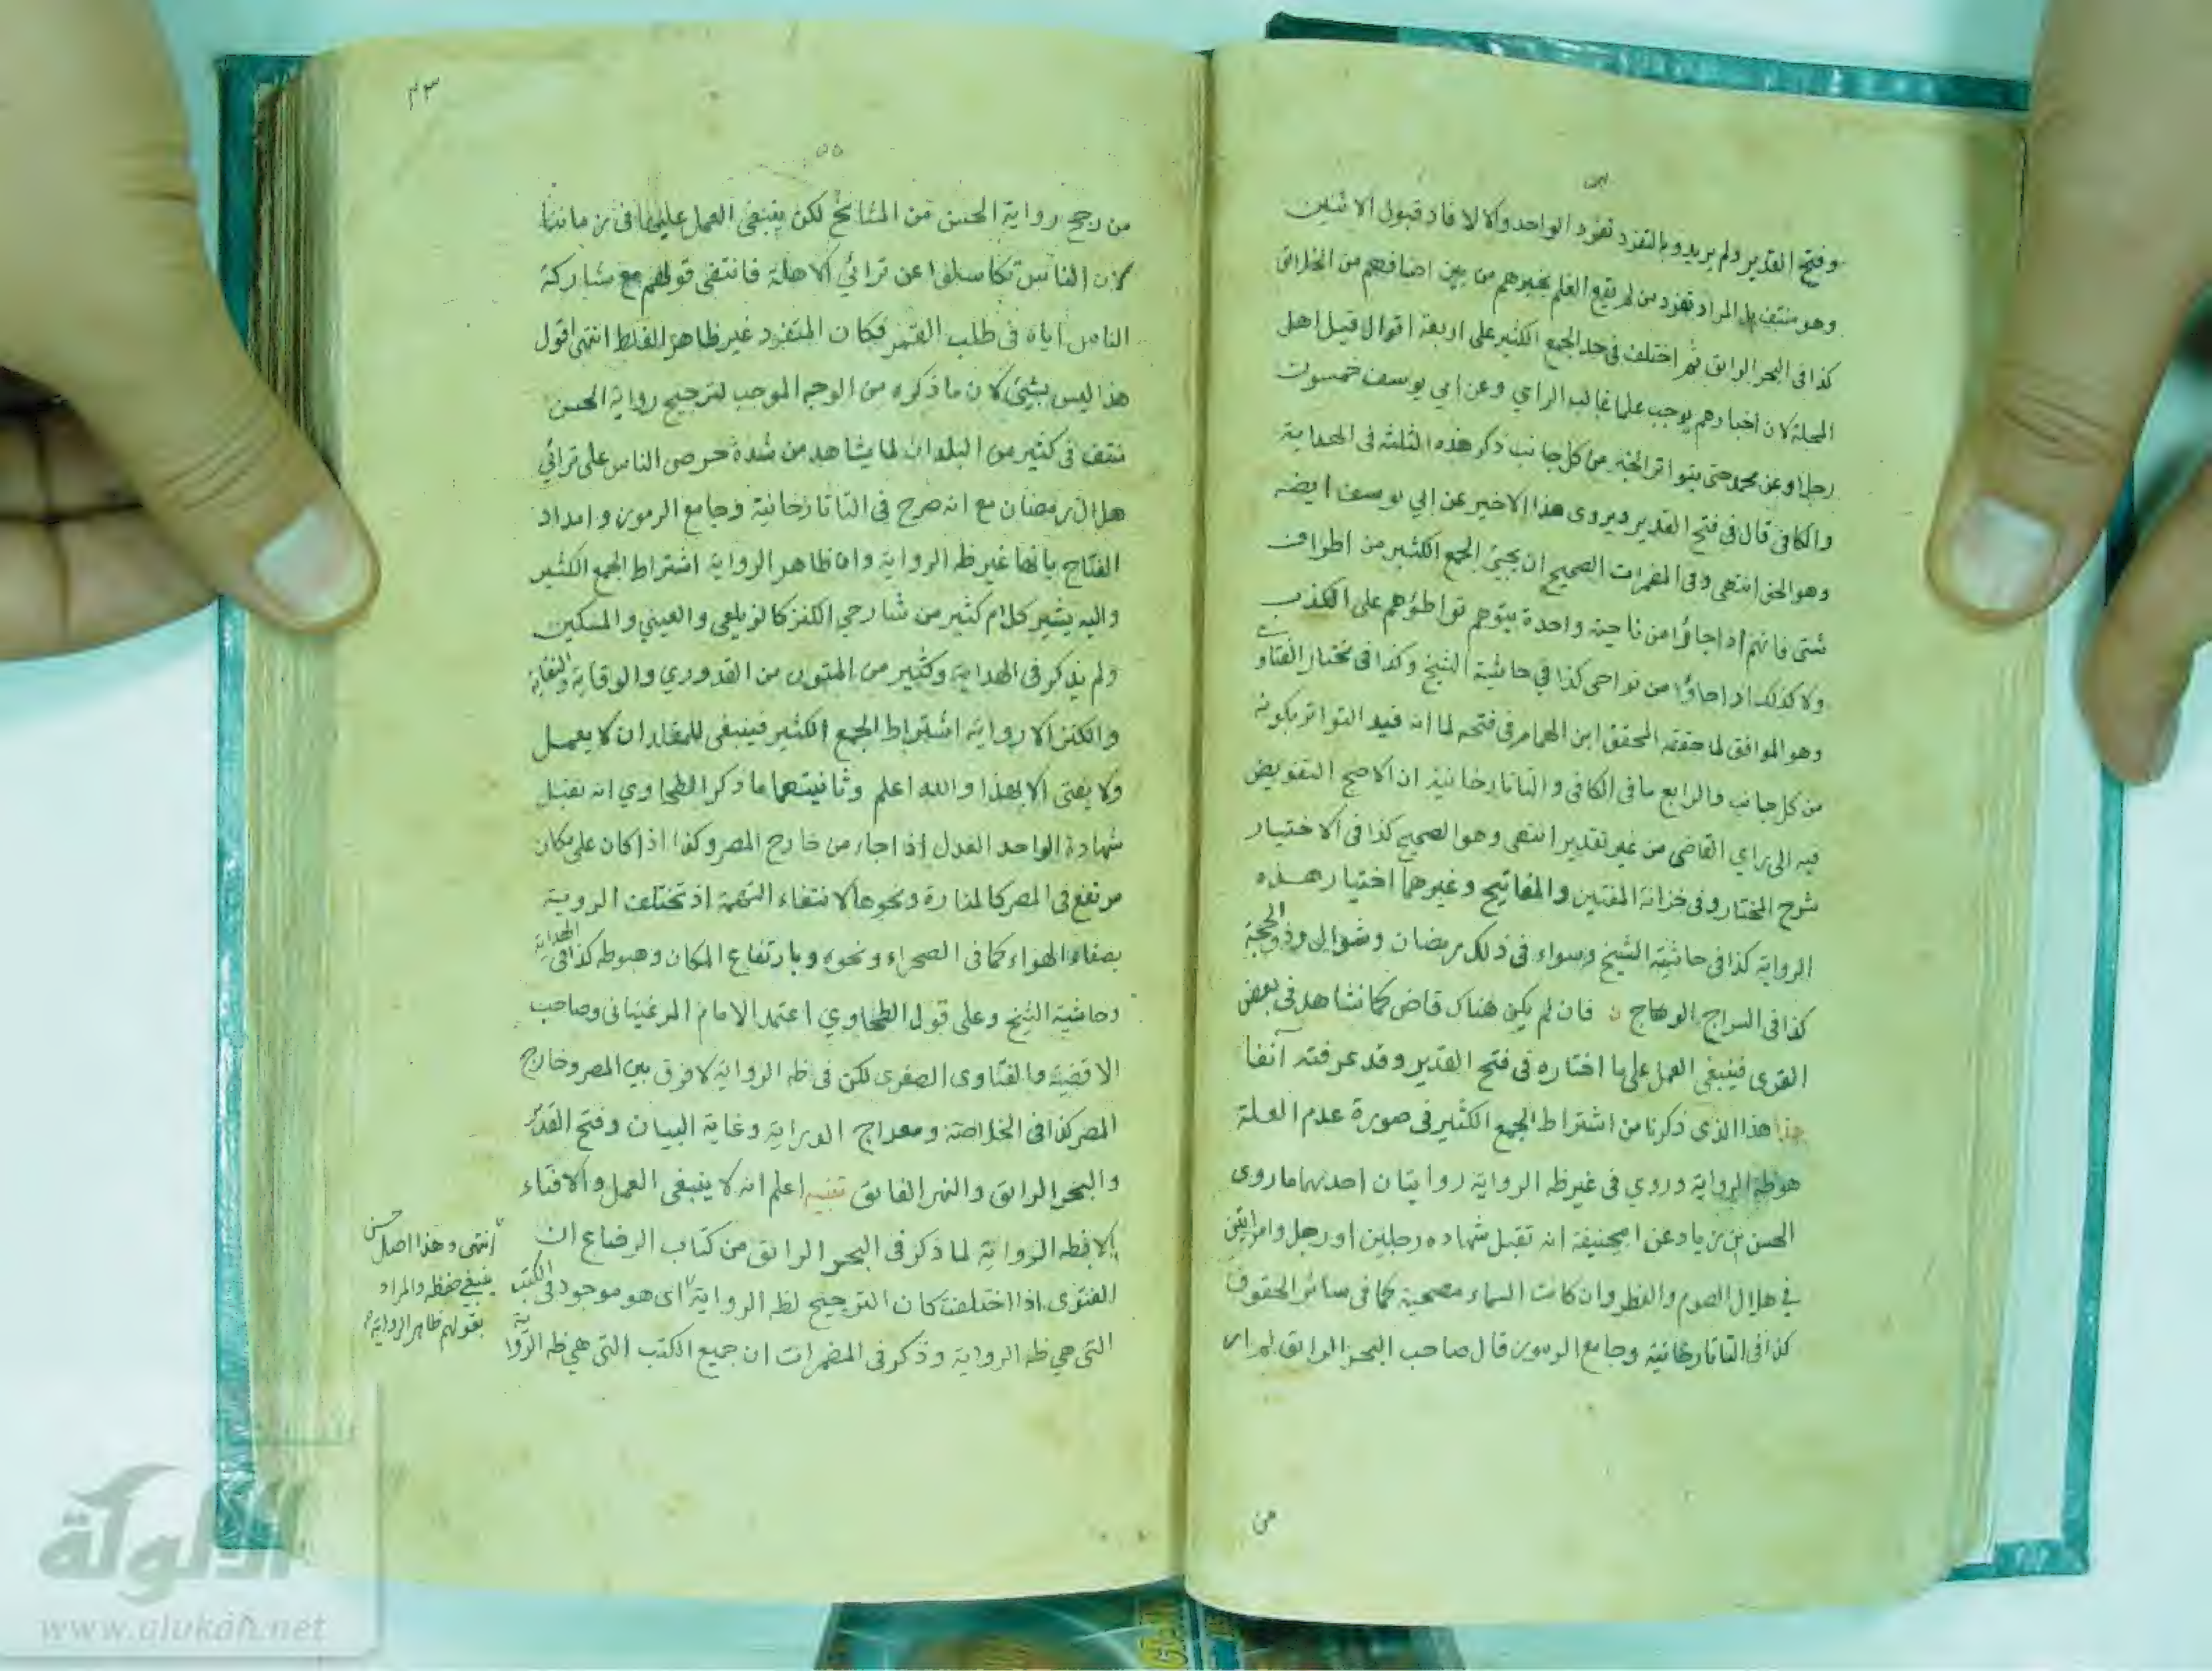 وفتح القدير ولم يريدوا بالتفرد تفرد الواحد والا لافاد قبول الاثنين
وهو منتف بل المراد تفرد من لم يقع العلم بخبرهم من بين اضعافهم من الخلائق
كذا فى البحر الرائق ثم اختلف فى حد الجمع الكثير على اربعة اقوال قيل اهل
المحلة لان اخبارهم يوجب علما غالب الراي وعن ابي يوسف خمسون
رجلا وعن محمد حتى يتواتر الخبر من كل جانب ذكر هذه الثلثة فى الهداية
والكافى قال فى فتح القدير ويروى هذا الاخير عن ابي يوسف ايضه
وهو الحق انتهى وفى المضمرات الصحيح ان يجيئ الجمع الكثير من اطراف
شتى فانهم اذا جاؤا من ناحية واحدة يتوهم تواطؤهم على الكذب
ولا كذلك اذا جاؤا من نواحى كذا في حاشية الشيخ وكذا فى مختار الفتاو
وهو الموافق لما حققه المحقق ابن الهمام فى فتحه لما انه قيد التواتر بكونه
من كل جانب والرابع ما فى الكافى والتاتارخانية ان الاصح التفويض
فيه الى راي القاضى من غير تقدير انتهى وهو الصحيح كذا فى الاختيار
شرح المختار وفى خزانة المفتين والمفاتيح وغيرهما اختيار هذه
الرواية كذا فى حاشية الشيخ وسواء فى ذلك رمضان وشوال وذو الحجة
كذا فى السراج الوهاج فان لم يكن هناك قاض كما نشاهد فى بعض
القرى فينبغى العمل على ما اختاره فى فتح القدير وقد عرفته آنفا
هذا الذى ذكرنا من اشتراط الجمع الكثير فى صورة عدم العلة
هو ظه الرواية وروي فى غير ظه الرواية روايتان احدهما ما روى
الحسن بن زياد عن ابيحنيفة انه تقبل شهاده رجلين او رجل وامراتين
في هلال الصوم والفطر وان كانت السماء مصحية كما فى سائر الحقوق
كذا فى التاتارخانية وجامع الرموز قال صاحب البحر الرائق لم ار
من
٤٣
٥٥
من رجح رواية الحسن من المشائخ لكن ينبغى العمل عليها فى زماننا
لان الناس تكاسلوا عن ترائي الاهلة فانتفى قولهم مع مشاركة
الناس اياه فى طلب القمر فكان المتفرد غير ظاهر الغلط انتهى اقول
هذا ليس بشيئ لان ما ذكره من الوجه الموجب لترجيح رواية الحسن
منتف فى كثير من البلدان لما يشاهد من شدة حرص الناس على ترائي
هلال رمضان مع انه صرح فى التاتارخانية وجامع الرموز وامداد
الفتاح بانها غير ظه الرواية وان ظاهر الرواية اشتراط الجمع الكثير
واليه يشير كلام كثير من شارحي الكنز كالزيلعي والعيني والمسكين
ولم يذكر فى الهداية وكثير من المتون من القدوري والوقاية والنقاية
والكنز الا رواية اشتراط الجمع الكثير فينبغى للمقلد ان لا يعمل
ولا يفتى الا بهذا والله اعلم وثانيتهما ما ذكر الطحاوي انه تقبل
شهادة الواحد العدل اذا جاء من خارج المصر وكذا اذا كان على مكان
مرتفع فى المصر كالمنارة ونحوها لانتفاء التهمة اذ تختلف الروية
بصفاء الهواء كما فى الصحراء ونحوه وبارتفاع المكان وهبوطه كذا فى الهداية
وحاشية الشيخ وعلى قول الطحاوي اعتمد الامام المرغينانى وصاحب
الاقضية والفتاوى الصغرى لكن فى ظه الرواية لا فرق بين المصر وخارج
المصر كذا فى الخلاصة ومعراج الدراية وغاية البيان وفتح القدير
والبحر الرائق والنهر الفائق تنبيه اعلم انه لا ينبغى العمل والافتاء
الا بظه الرواية لما ذكر فى البحر الرائق من كتاب الرضاع ان
الفتوى اذا اختلفت كان الترجيح لظه الرواية اى هو موجود فى الكتب
التى هي ظه الرواية وذكر فى المضمرات ان جميع الكتب التى هي ظه الرواية
انتهى وهذا اصل حسن
ينبغي حفظه والمراد
بقولهم ظاهر الرواية
الألوكة
www.alukah.net